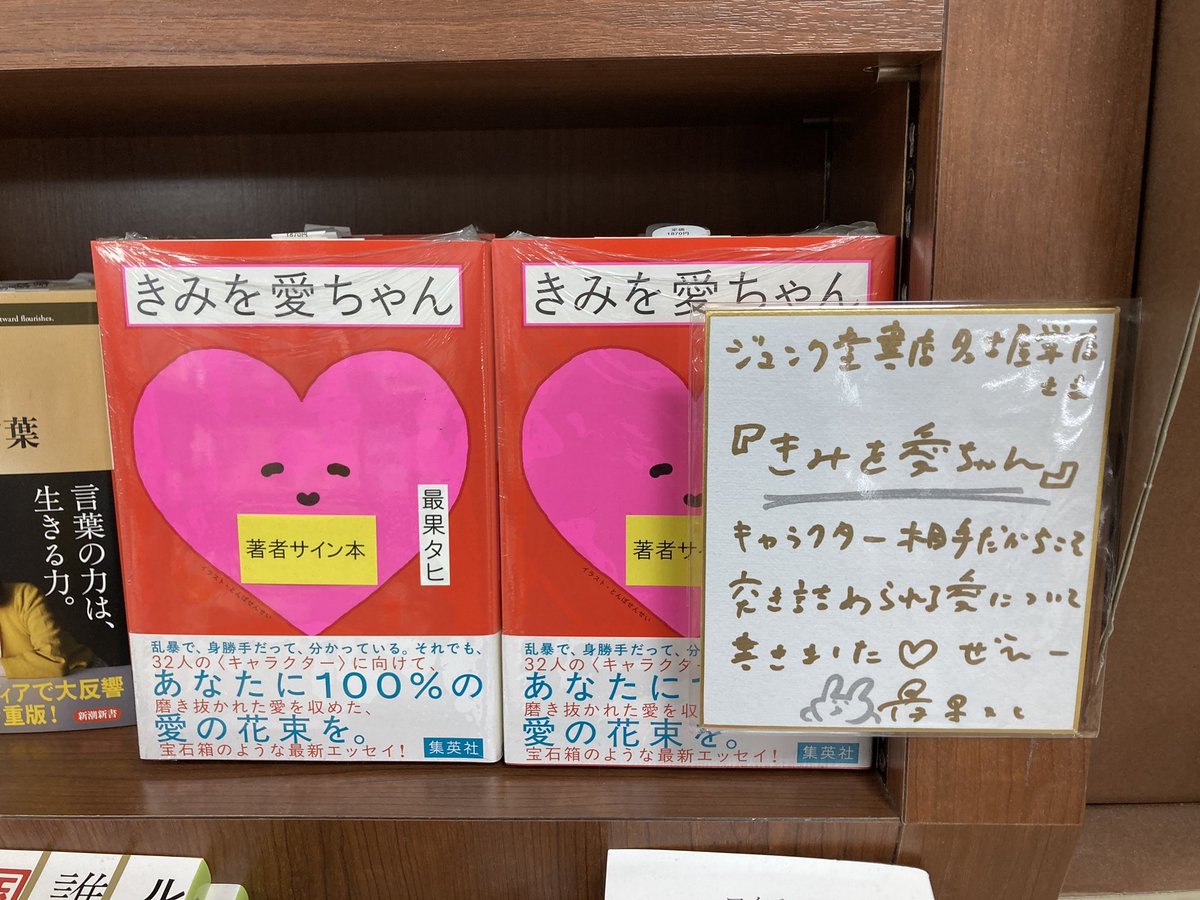 tward flourishes.
葉
言葉の力は、
生きる力。
ィアで大反響
重版!
新潮新書
1870円
きみを愛ちゃん
著者サイン本
最果タヒ
イラスト・とんぼせんせい
乱暴で、身勝手だって、分かっている。それでも、
32人の〈キャラクター〉に向けて、
あなたに100%の
磨き抜かれた愛を収めた、
愛の花束を。
宝石箱のような最新エッセイ!
集英社
定価
1870円
きみを愛ちゃん
著者サ
イラスト・とんぼせんせい
乱暴で、身勝手だって、分
32人の〈キャラクタ
あなたに
磨き抜かれた愛を収
愛の花束を。
宝石箱のような最新エッセイ!
集英社
ジュンク堂書店名古屋栄店
さま
『きみを愛ちゃん』
キャラクター相手だからこそ
突き詰められる愛について
書きました♡ ぜひー
最果タヒ
誰